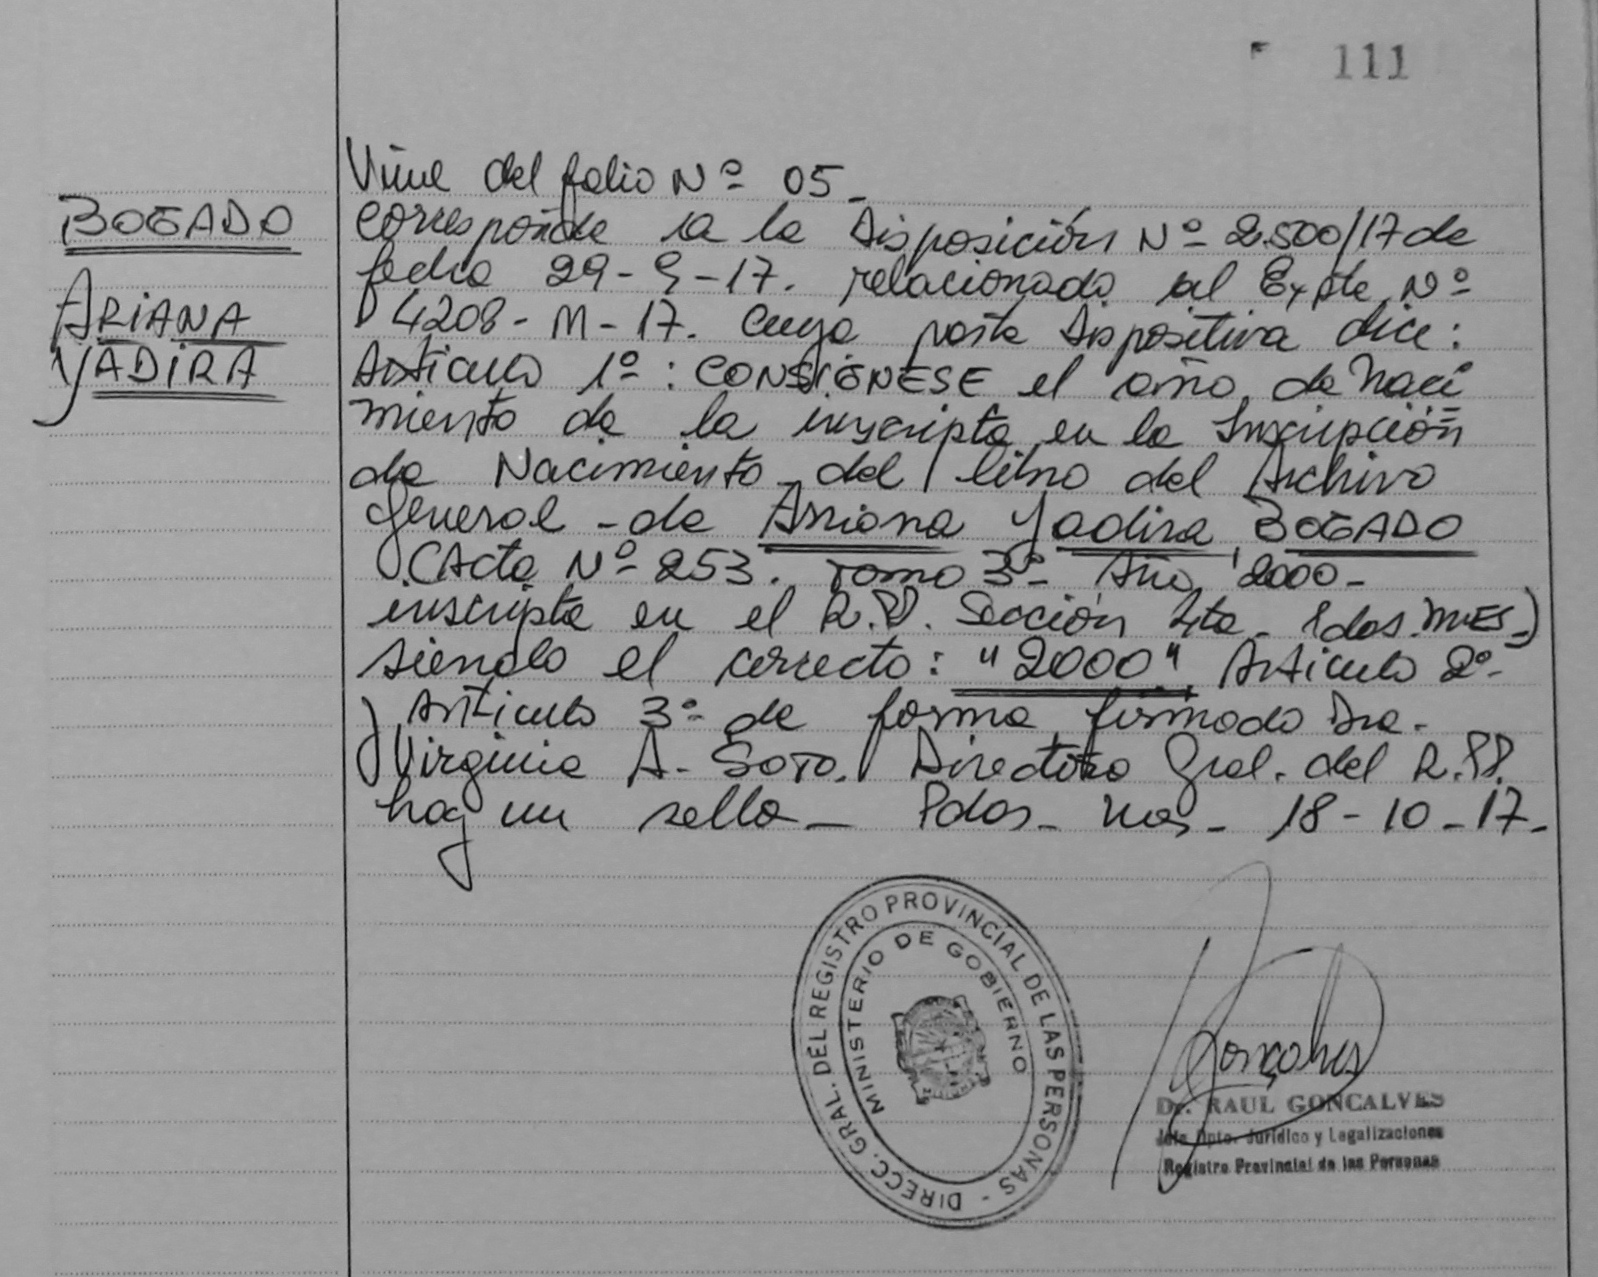 111
BOGADO
ARIANA
YADIRA
Viene del folio Nº 05_
Corresponde a la Disposición Nº 2.500/17 de
fecha 29-9-17. relacionado al Expte Nº
4208-M-17. Cuya parte Dispositiva dice:
Articulo 1º: CONSIGNESE el año de naci
miento de la inscripta en la Inscripción
de Nacimiento del libro del Archivo
General - de Ariana Yadira BOGADO
(Acta Nº 253. Tomo 3º Año 2000-
inscripta en el R.P. Sección 4ta. Pdas. Mnes_)
siendo el correcto: "2000" Articulo 2º-
Articulo 3º de forma firmado Dra.
Virginia A. Soto. Directora Gral. del R.PP.
hay un sello_ Pdas_ Mnes_ 18-10-17.-
DIRECC. GRAL. DEL REGISTRO PROVINCIAL DE LAS PERSONAS -
MINISTERIO DE GOBIERNO
Dr. RAUL GONCALVES
Jefe Dpto. Jurídico y Legalizaciones
Registro Provincial de las Personas